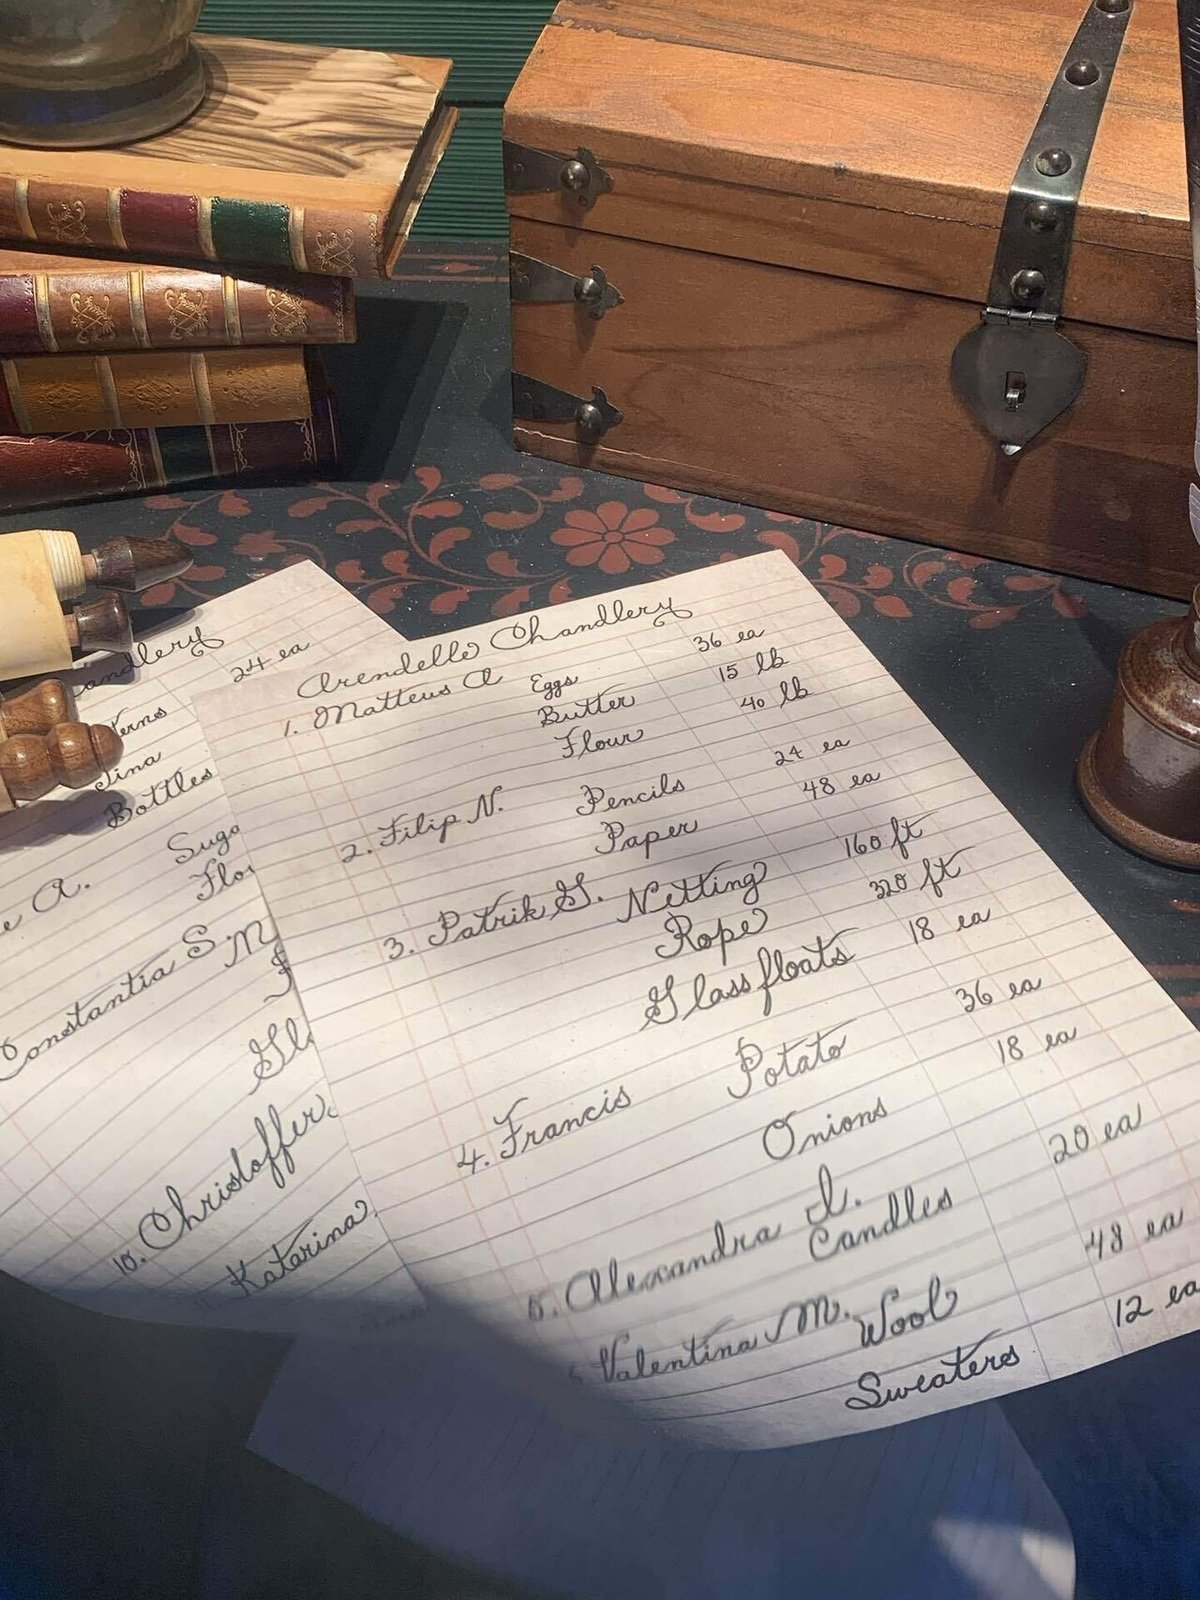 Arendelle Chandlery
1. Matteus A Eggs 36 ea
Butter 15 lb
Flour 40 lb
2. Filip N. Pencils 24 ea
Paper 48 ea
3. Patrik G. Netting 160 ft
Rope 320 ft
Glass floats 18 ea
4. Francis Potato 36 ea
Onions 18 ea
5. Alexandra I.
Candles 20 ea
Valentina M. Wool 48 ea
Sweaters 12 ea
andlery
24 ea
terns
Tina
Bottles
Suga
e A. Flo
Constantia S. M
F
Gl
10. Christoffer
Katarina